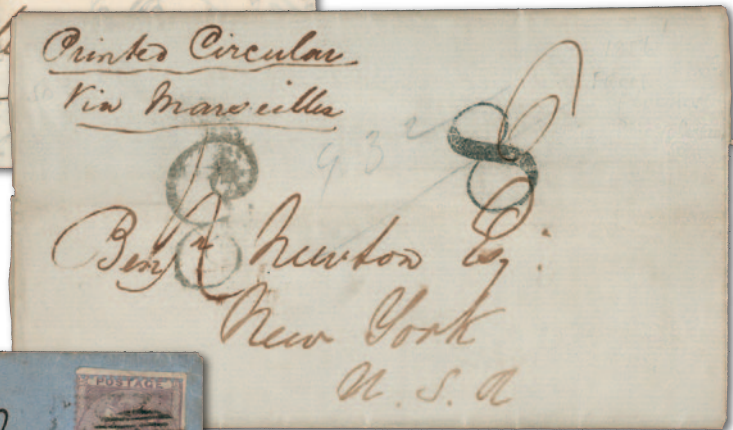 Printed Circular
Via Marseilles
8
8
932
Benjn Newton Esq.
New York
U. S. A
POSTAGE